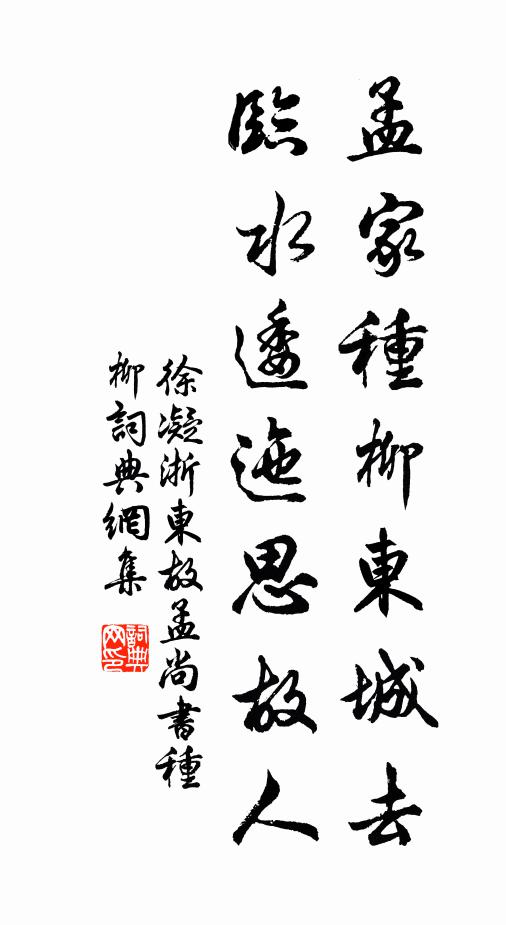 孟家種柳東城去
臨水逶迤思故人
徐凝浙東故孟尚書種
柳詞典網集
詞典網印